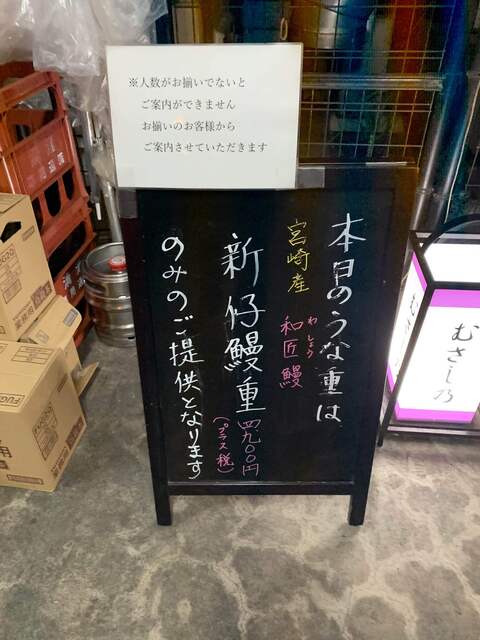 ※人数がお揃いでないと
ご案内ができません
お揃いのお客様から
ご案内させていただきます
本日のうな重は
宮崎産
わしょう
和匠鰻
新仔鰻重
四九〇〇円
(プラス税)
のみのご提供となります
むさし乃